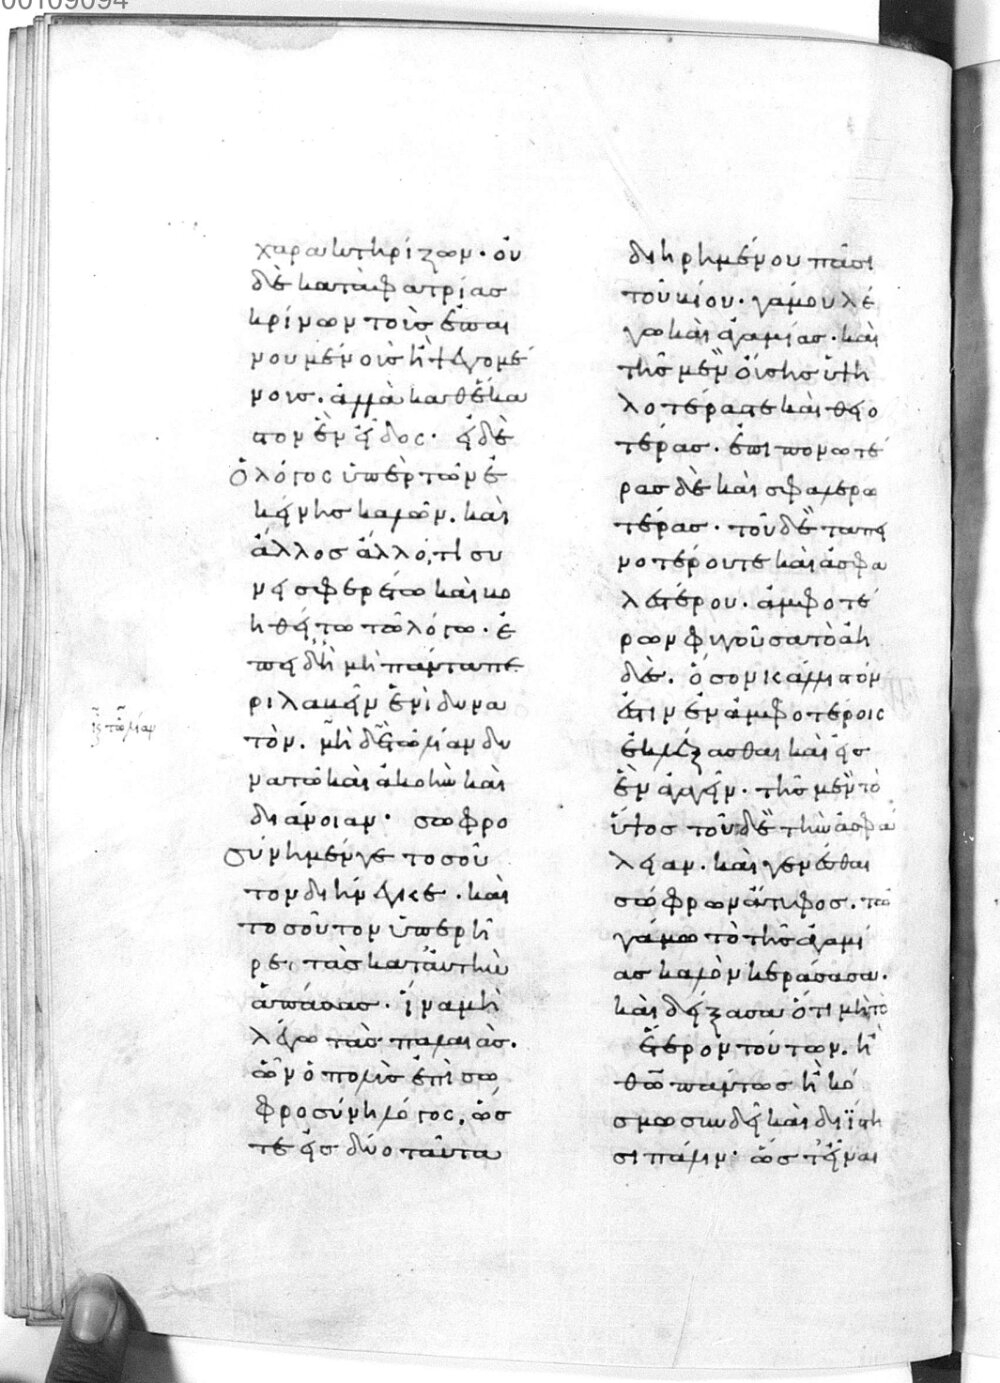 χαρακτηρίζων· οὐ
δὲ κατὰ φατρίας
κρίνων τοῖς ἐπαι
νουμένοις ἢ ψεγομέ
νοις. ἀλλὰ καθ' ἕκα
στον ἓν εἶδος· εἰ δὲ
ὁ λόγος ὑπὲρ τῶν ἐ
κείνης καλῶν. καὶ
ἄλλος ἄλλό, τι συ
νεισφερέτω καὶ βο
ηθείτω τῶ λόγω· ἐ
πειδὴ μὴ πάντα πε
ριλαβεῖν ἑνὶ δυνα
τὸν. μὴ δὲ τῶ λίαν δυ
νατῶ καὶ ἀκοὴν καὶ
διάνοιαν· σωφρο
σύνη μέν γε τοσοῦ
τον διήνεγκε. καὶ
τοσοῦτον ὑπερῆ
ρε, τὰς κατ' αὐτὴν
ἁπάσας. ἵνα μὴ
λέγω τὰς παλαιὰς.
ὧν ὁ πολὺς ἐπὶ σω
φροσύνη λόγος, ὥσ
τε εἰς δύο ταῦτα
ἢ τῶ λίαν
διηρημένου πᾶσι
τοῦ βίου· γάμου λέ
γω καὶ ἀγαμίας· καὶ
τῆς μὲν οὔσης ὑψη
λοτέρας τε καὶ θειο
τέρας. ἐπιπονωτέ
ρας δὲ καὶ σφαλερω
τέρας· τοῦ δὲ ταπει
νοτέρου τε καὶ ἀσφα
λεστέρου. ἀμφοτέ
ρων φυγοῦσα τὸ ἀη
δὲς. ὅσον κάλλιστόν
ἐστιν ἐν ἀμφοτέροις
ἐκλέξασθαι καὶ εἰς
ἓν ἀγαγεῖν· τῆς μὲν τὸ
ὕψος τοῦ δὲ τὴν ἀσφά
λειαν. καὶ γενέσθαι
σώφρων ἄτυφος. τῶ
γάμω τὸ τῆς ἀγαμί
ας καλὸν κεράσασα.
καὶ δείξασα ὅτι μὴ τὸ
ἕτερον τούτων. ἢ
θῶ πάντως ἢ κό
σμω συνδεῖ καὶ διΐστη
σι πάλιν· ὥστ' εἶναι